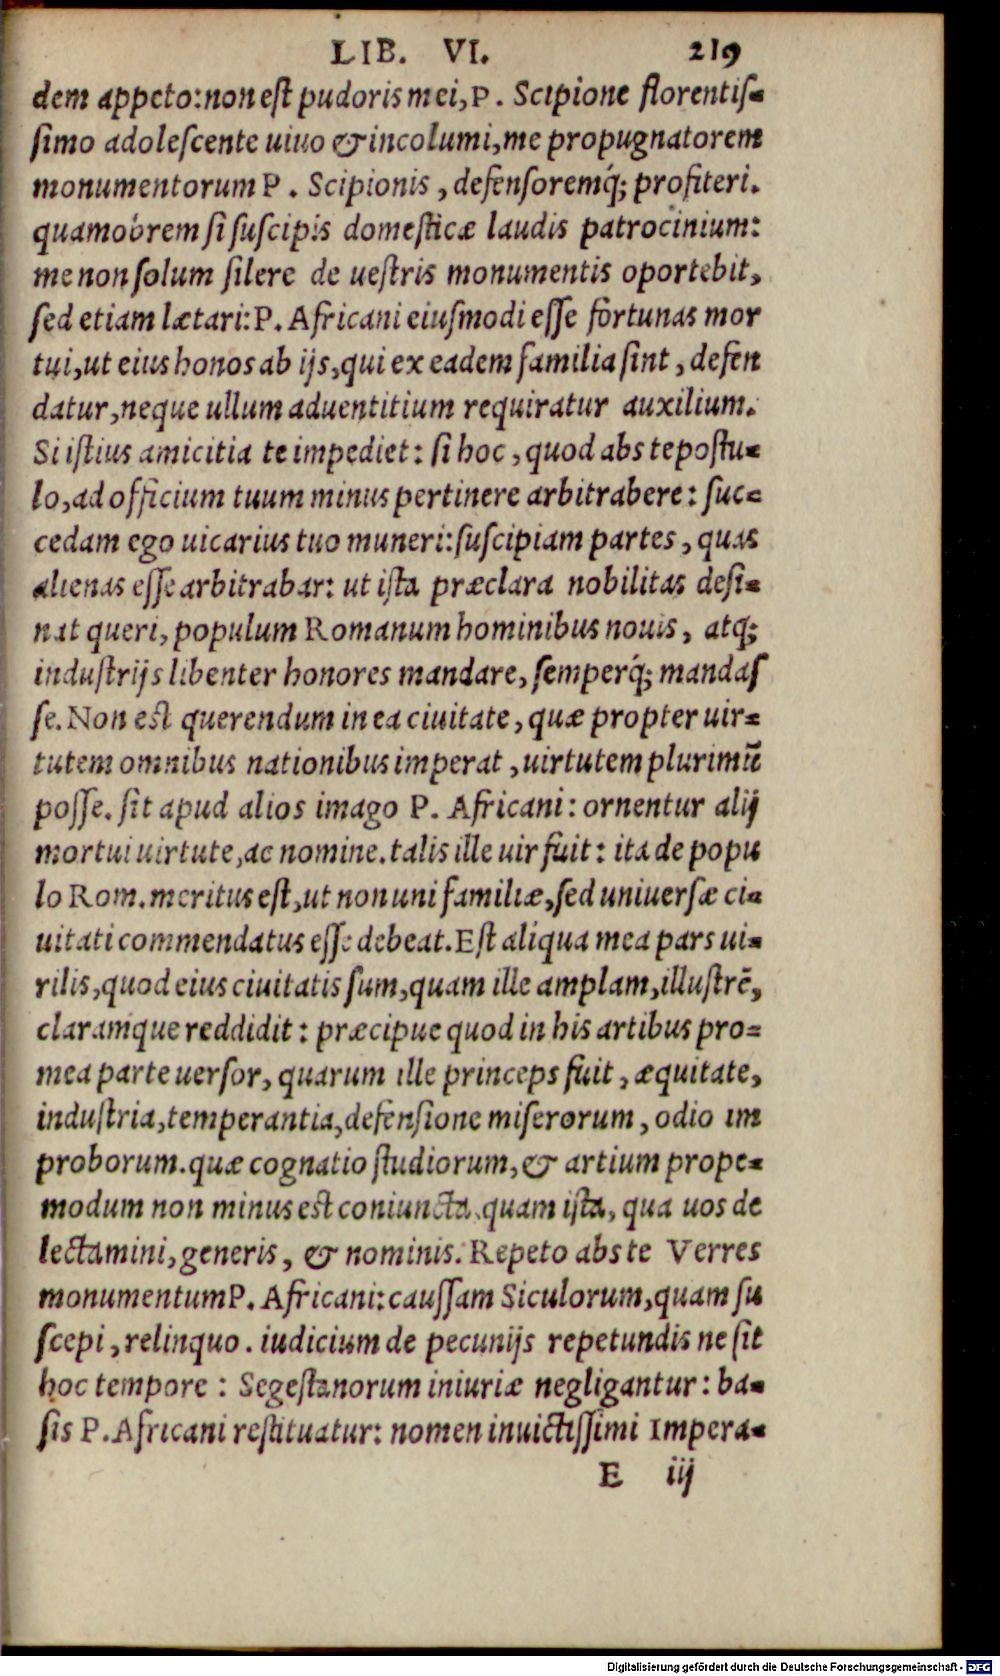 LIB. VI. 219
dem appeto: non eſt pudoris mei, P. Scipione florentiſ-
ſimo adoleſcente uiuo & incolumi, me propugnatorem
monumentorum P. Scipionis, defenſoremq́; profiteri.
quamobrem ſi ſuſcipis domeſticæ laudis patrocinium:
me non ſolum ſilere de ueſtris monumentis oportebit,
ſed etiam lætari: P. Africani eiuſmodi eſſe fortunas mor
tui, ut eius honos ab ijs, qui ex eadem familia ſint, defen
datur, neque ullum aduentitium requiratur auxilium.
Si iſtius amicitia te impediet: ſi hoc, quod abs te poſtu-
lo, ad officium tuum minus pertinere arbitrabere: ſuc-
cedam ego uicarius tuo muneri: ſuſcipiam partes, quas
alienas eſſe arbitrabar: ut iſta præclara nobilitas deſi-
nat queri, populum Romanum hominibus nouis, atq;
induſtrijs libenter honores mandare, ſemperq́; mandaſ
ſe. Non eſt querendum in ea ciuitate, quæ propter uir-
tutem omnibus nationibus imperat, uirtutem plurimū
poſſe. ſit apud alios imago P. Africani: ornentur alij
mortui uirtute, ac nomine. talis ille uir fuit: ita de popu
lo Rom. meritus eſt, ut non uni familiæ, ſed uniuerſæ ci-
uitati commendatus eſſe debeat. Eſt aliqua mea pars ui-
rilis, quod eius ciuitatis ſum, quam ille amplam, illuſtrē,
claramque reddidit: præcipue quod in his artibus pro-
mea parte uerſor, quarum ille princeps fuit, æquitate,
induſtria, temperantia, defenſione miſerorum, odio im
proborum. quæ cognatio ſtudiorum, & artium prope-
modum non minus eſt coniuncta, quam iſta, qua uos de
lectamini, generis, & nominis. Repeto abs te Verres
monumentum P. Africani: cauſſam Siculorum, quam ſu
ſcepi, relinquo. iudicium de pecunijs repetundis ne ſit
hoc tempore: Segeſtanorum iniuriæ negligantur: ba-
ſis P. Africani reſtituatur: nomen inuictiſſimi Impera-
E iij
Digitalisierung gefördert durch die Deutsche Forschungsgemeinschaft - DFG